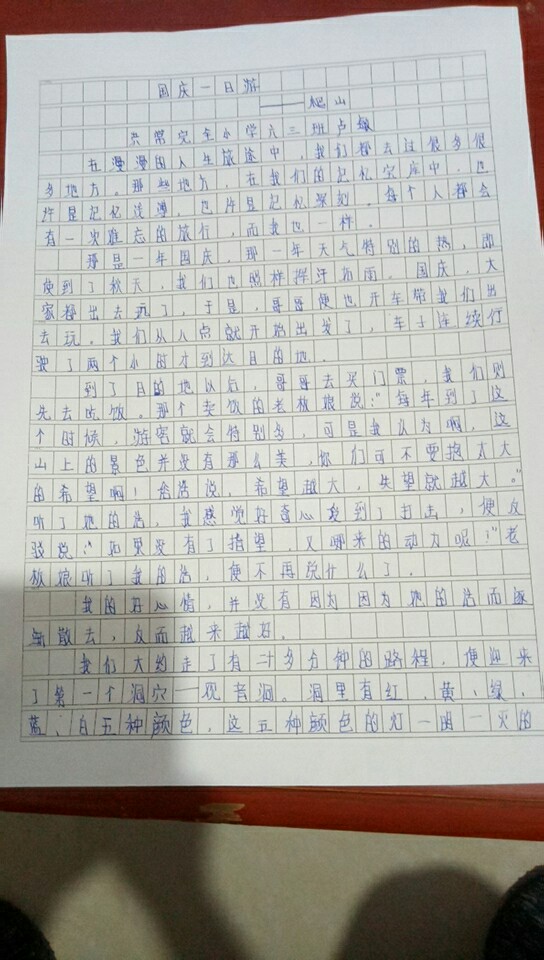 国庆一日游
——爬山
完全小学六三班卢
在漫漫的人生旅途中，我们都去过很多很
多地方。那些地方，在我们的记忆宝库中，也
许是记忆浅漫，也许是记忆深刻。每个人都会
有一次难忘的旅行，而我也一样。
那是一年国庆，那一年天气特别的热，即
使到了秋天，我们也照样挥汗如雨。国庆，大
家都出去玩了，于是，哥哥便也开车带我们出
去玩。我们从八点就开始出发了，车子连续行
驶了两个小时才到达目的地。
到了目的地以后，哥哥去买门票，我们则
先去吃饭。那个卖饭的老板娘说："每年到了这
个时候，游客就会特别多，可是我认为啊，这
山上的景色并没有那么美，你们可不要抱太大
的希望啊！俗话说，希望越大，失望就越大。"
听了她的话，我感觉好奇心受到了打击，便反
驳说："如果没有了指望，又哪来的动力呢？"老
板娘听了我的话，便不再说什么了。
我的好心情，并没有因为因为她的话而逐
渐散去，反而越来越好。
我们大约走了有二十多分钟的路程，便迎来
了第一个洞穴——观音洞。洞里有红、黄、绿、
蓝、白五种颜色，这五种颜色的灯一明一灭的